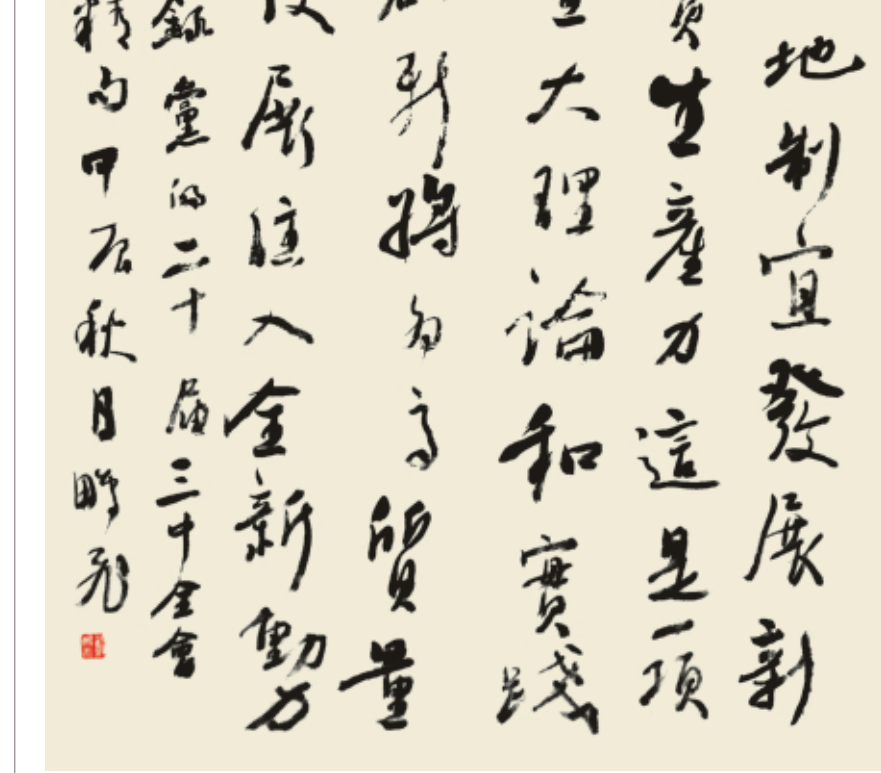 地制宜發展新
質生產力這是一項
大理論和實踐
創新將為高質量
發展注入全新動力
錄黨的二十屆三中全會
精句甲辰秋月時飛